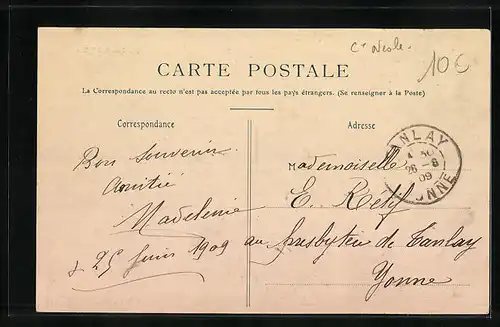 10€
CARTE POSTALE
La Correspondance au recto n'est pas acceptée par tous les pays étrangers. (Se renseigner à la Poste)
Correspondance
Adresse
Bon Souvenir
Amitié
Madeleine
25 Juin 1909
Mademoiselle
E. Rétif
au presbytère de Tanlay
Yonne
TANLAY
26 -6
09
YONNE